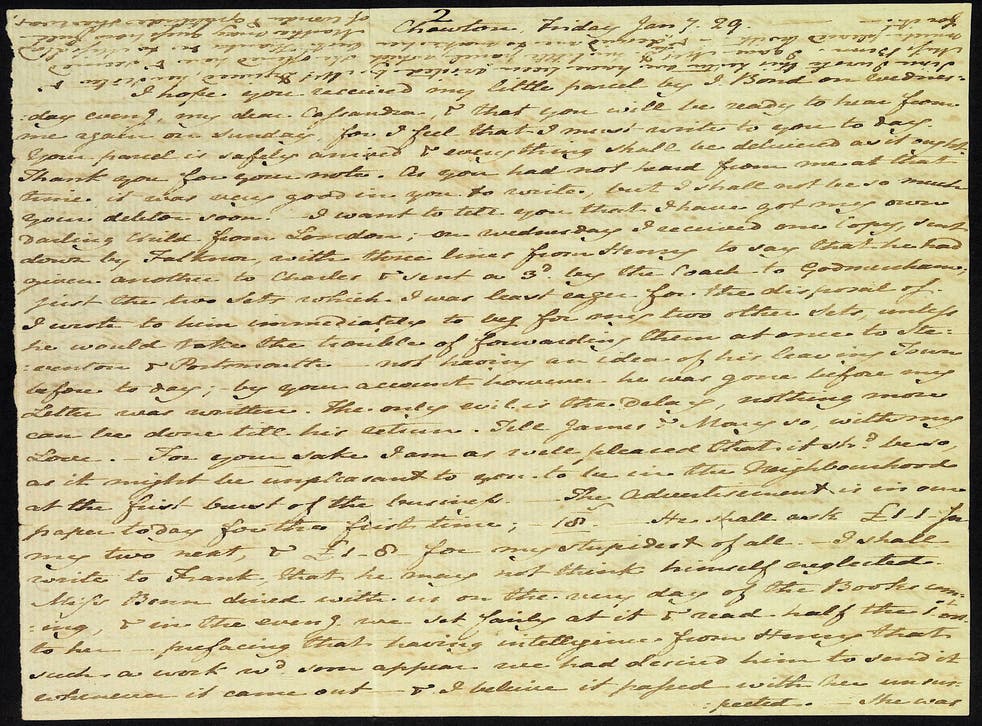 2
Chawton, Friday Jany 29.
I hope you received my little parcel by J. Bond on Wednes=
=day eveng, my dear Cassandra, & that you will be ready to hear from
me again on Sunday, for I feel that I must write to you to day.
Your parcel is safely arrived & everything shall be delivered as it ought.
Thank you for your note. As you had not heard from me at that
time it was very good in you to write, but I shall not be so much
your debtor soon. — I want to tell you that I have got my own
darling Child from London; — on Wednesday I received one Copy, sent
down by Falknor, with three lines from Henry to say that he had
given another to Charles & sent a 3d. by the Coach to Godmersham;
just the two Sets which I was least eager for the disposal of.
I wrote to him immediately to beg for my two other Sets, unless
he would take the trouble of forwarding them at once to Ste=
=venton & Portsmouth — not having an idea of his leaving Town
before to day; — by your account however he was gone before my
Letter was written. The only evil is the delay, nothing more
can be done till his return. Tell James & Mary so, with my
Love. — For your sake I am as well pleased that it shd be so,
as it might be unpleasant to you to be in the Neighbourhood
at the first burst of the business. — The Advertisement is in our
paper to day for the first time; — 18s. — He shall ask £1-1- for
my two next, & £1-8- for my stupidest of all. — I shall
write to Frank, that he may not think himself neglected.
Miss Benn dined with us on the very day of the Books com=
=ing, & in the eveng we set fairly at it & read half the 1st vol.
to her — prefacing that having intelligence from Henry that
such a work wd soon appear we had desired him to send it
whenever it came out — & I beleive it passed with her unsus=
=pected. — She was